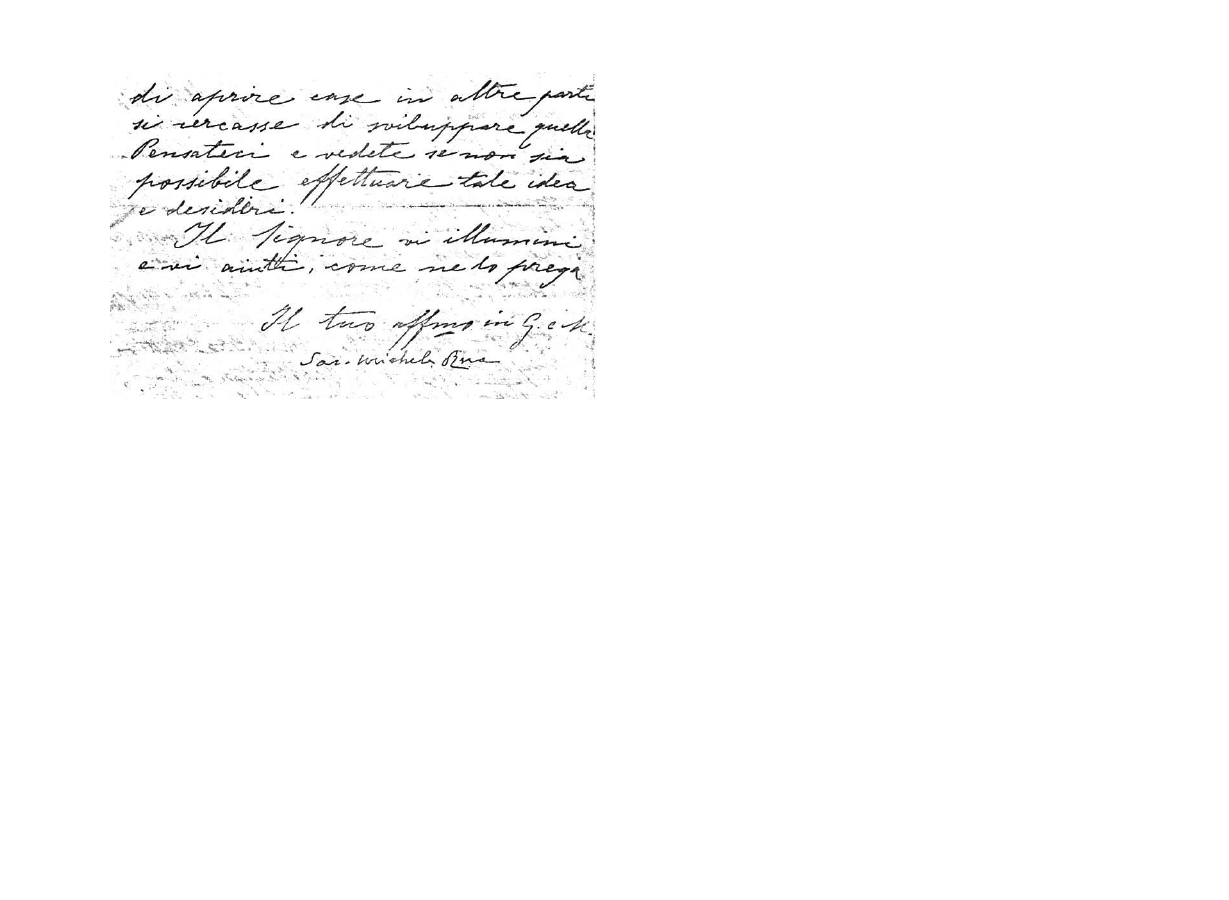 di aprire case in altre parti
si cercasse di sviluppare quelle
Pensateci e vedete se non sia
possibile effettuare tale idea
e desideri.
Il Signore vi illumini
e vi aiuti, come ne lo prega
Il tuo affmo in G. e M.
Sac. Michele Rua